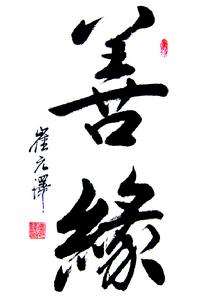 善緣
崔元澤